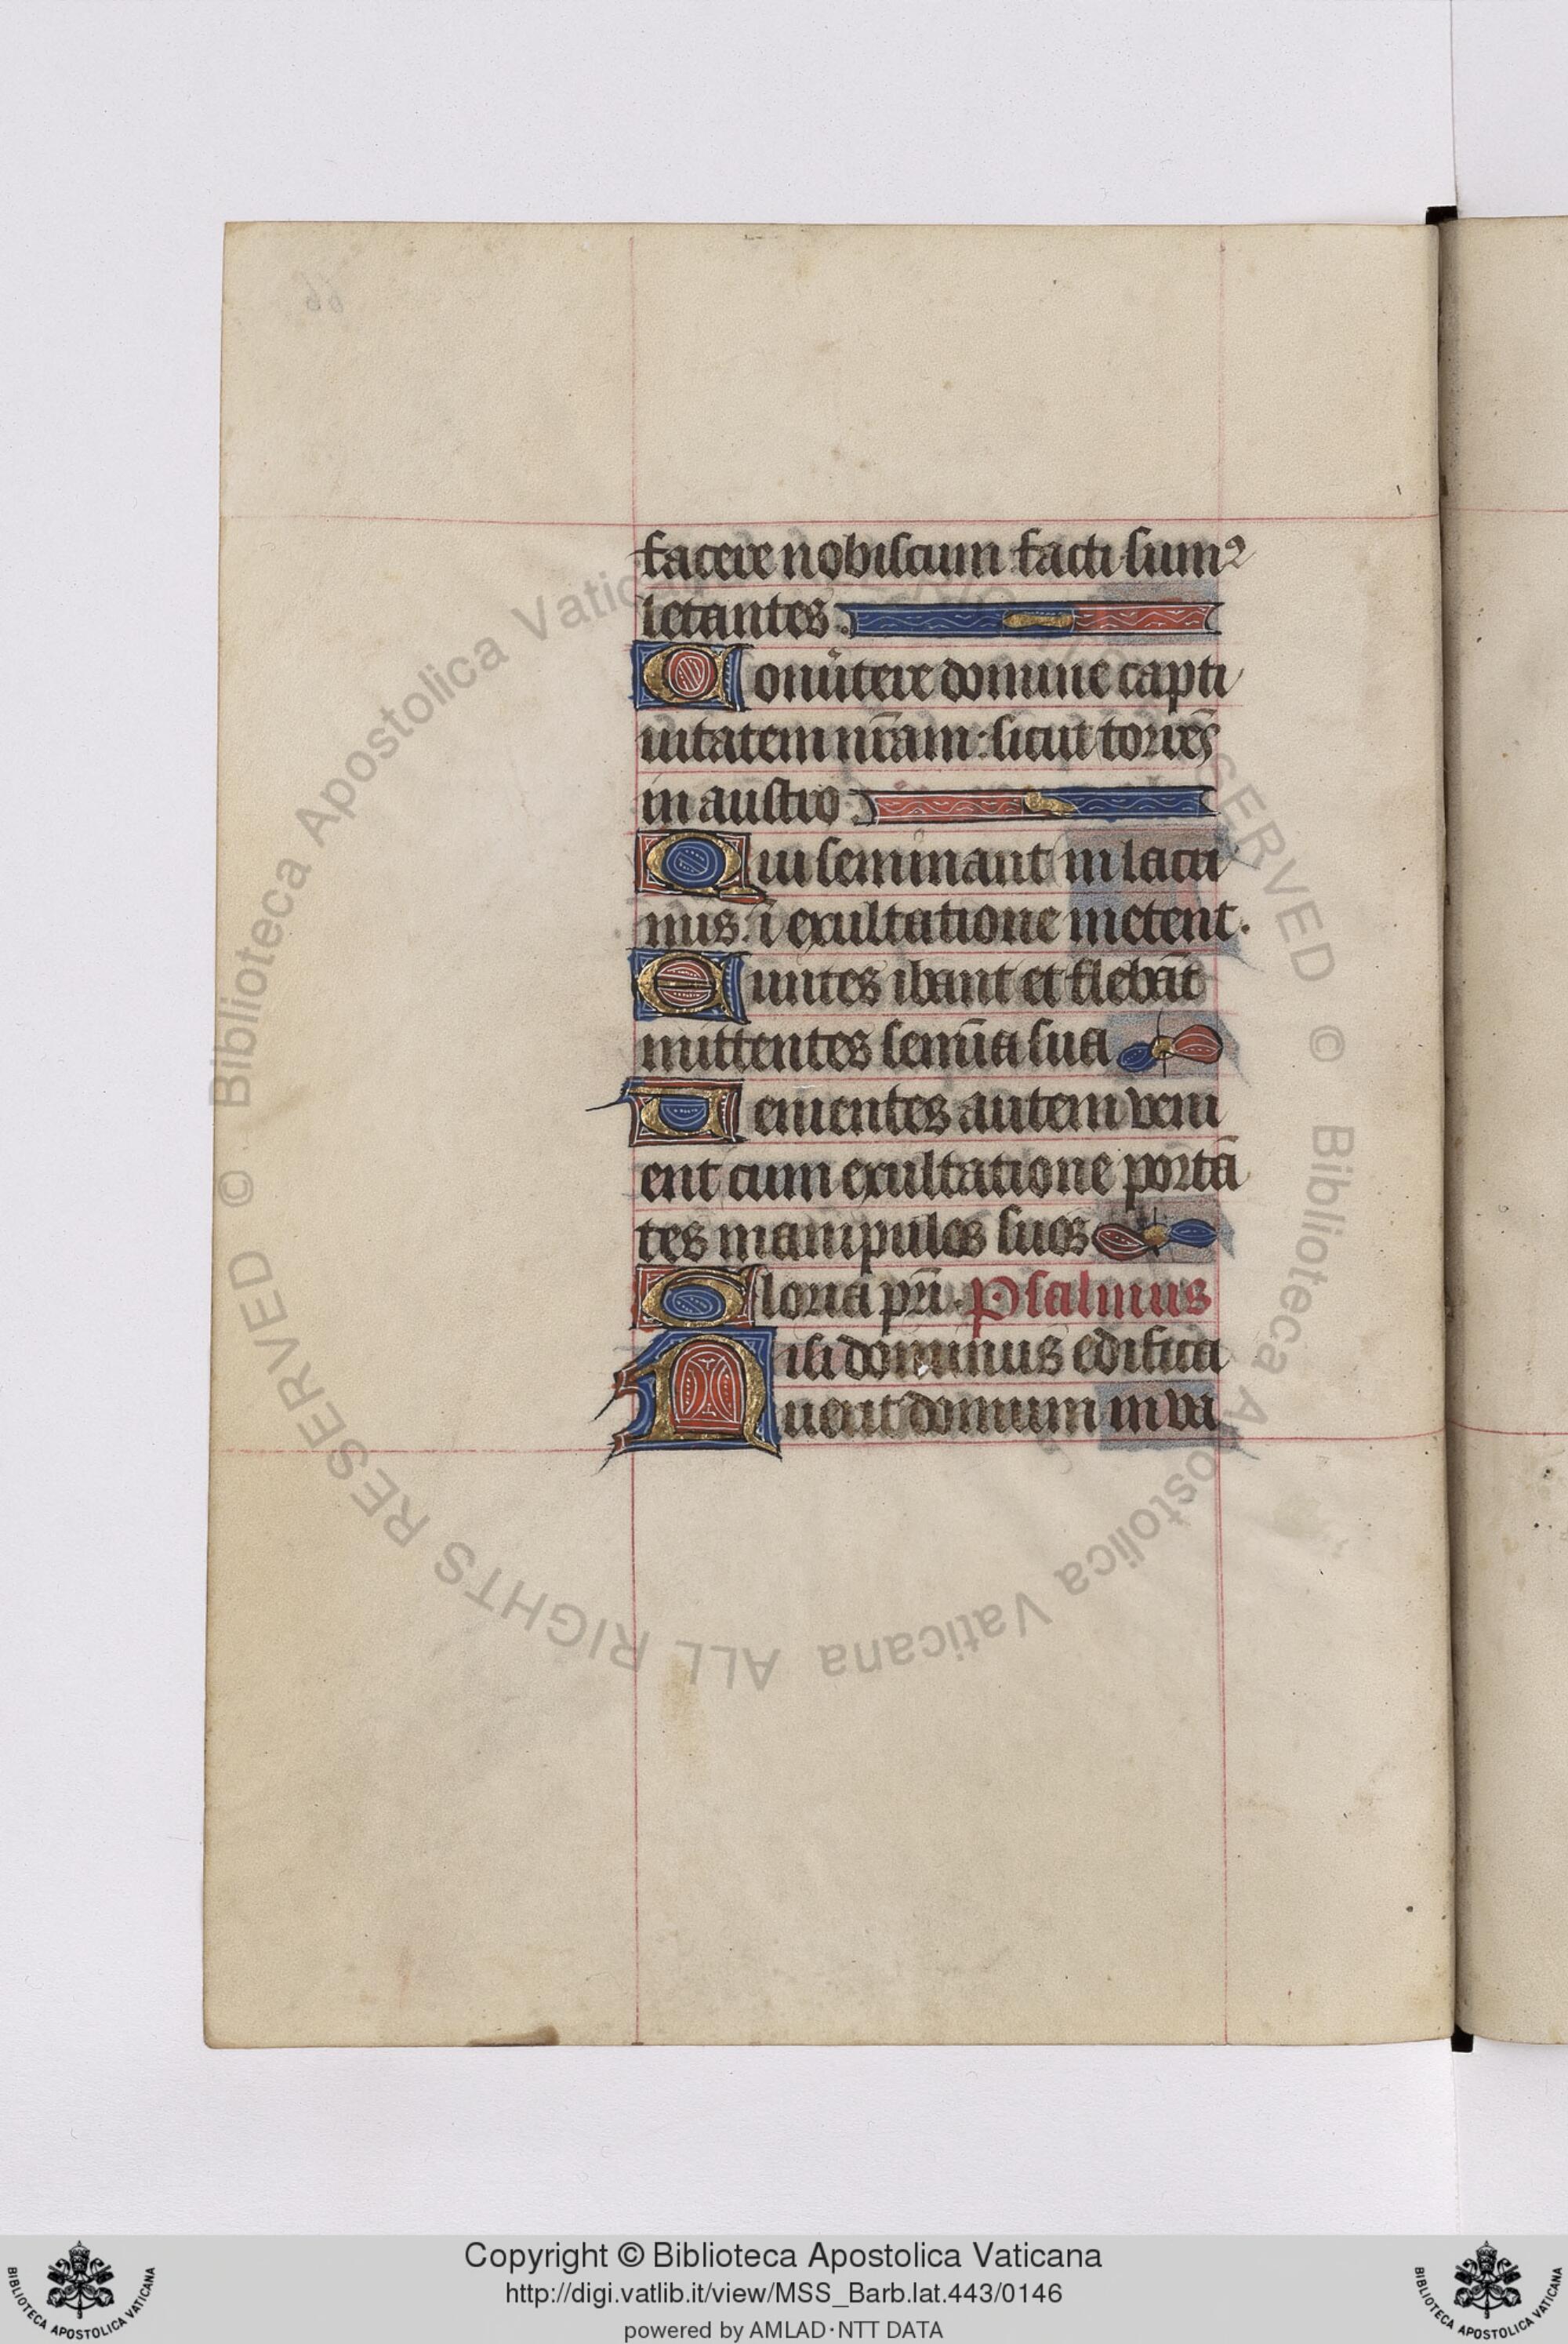 facere nobiscum facti sumꝰ
letantes.
Conũtere domine capti
uitatem nr̄am: sicut torrēs
in austro.
Qui seminant in lacri
mis. ī exultatione metent.
Euntes ibant et flebāt
mittentes semīa sua
Uenientes autem veni
ent cum exultatione portā
tes manipulos suos
Gloria pr̄i. Psalmus
Nisi dominus edifica
uerit domum in va
© Biblioteca Apostolica Vaticana ALL RIGHTS RESERVED
© Biblioteca Apostolica Vaticana ALL RIGHTS RESERVED
Copyright © Biblioteca Apostolica Vaticana
http://digi.vatlib.it/view/MSS_Barb.lat.443/0146
powered by AMLAD·NTT DATA
BIBLIOTECA APOSTOLICA VATICANA
BIBLIOTECA APOSTOLICA VATICANA